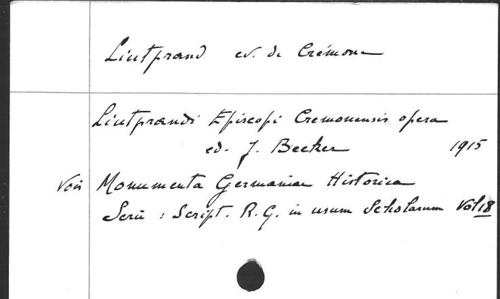 Liutprand ev. de Crémone
Liutprandi Episcopi Cremonensis opera
ed. J. Becker 1915
Voir Monumenta Germaniae Historica
Serie : Script. R. G. in usum Scholarum Vol 18